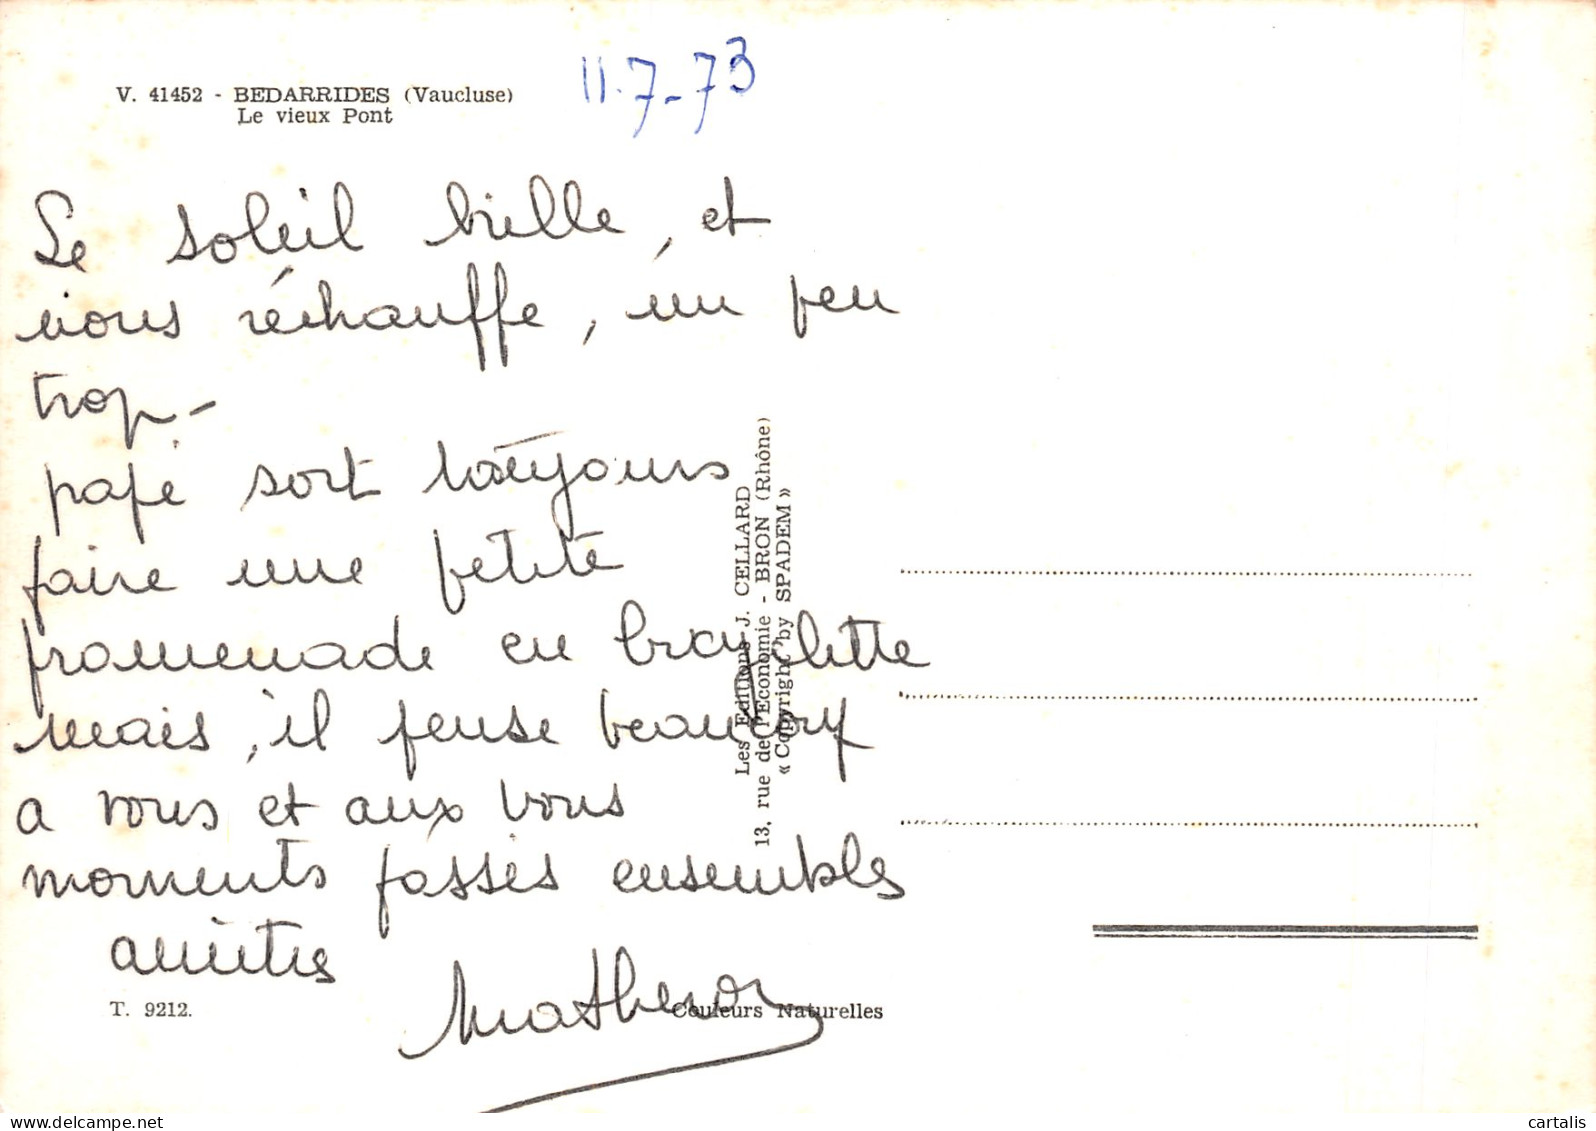 V. 41452 - BEDARRIDES (Vaucluse)
Le vieux Pont
11.7-73
Le soleil brille, et
nous réchauffe, un peu
trop -
papé sort toujours
faire une petite
promenade en brayolette
mais, il pense beaucoup
a vous et aux bons
moments passés ensembles
amitiés
Matheron
Les Editions J. CELLARD
13, rue de l'Economie - BRON (Rhône)
« Copyright by SPADEM »
T. 9212.
Couleurs Naturelles
delcampe.net
cartalis